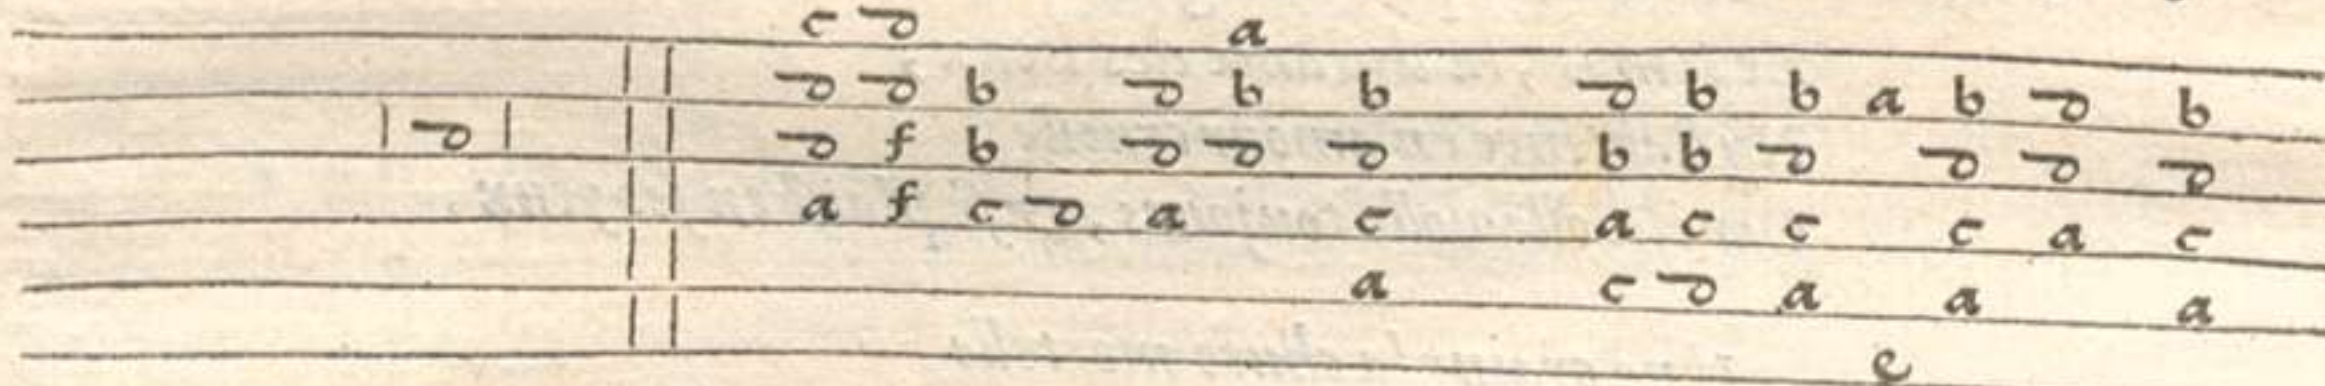 c d a
d d b d b b d b b a b d b
d d f b d d d b b d d d d
a f c d a c a c c c a c
a c d a a a
e